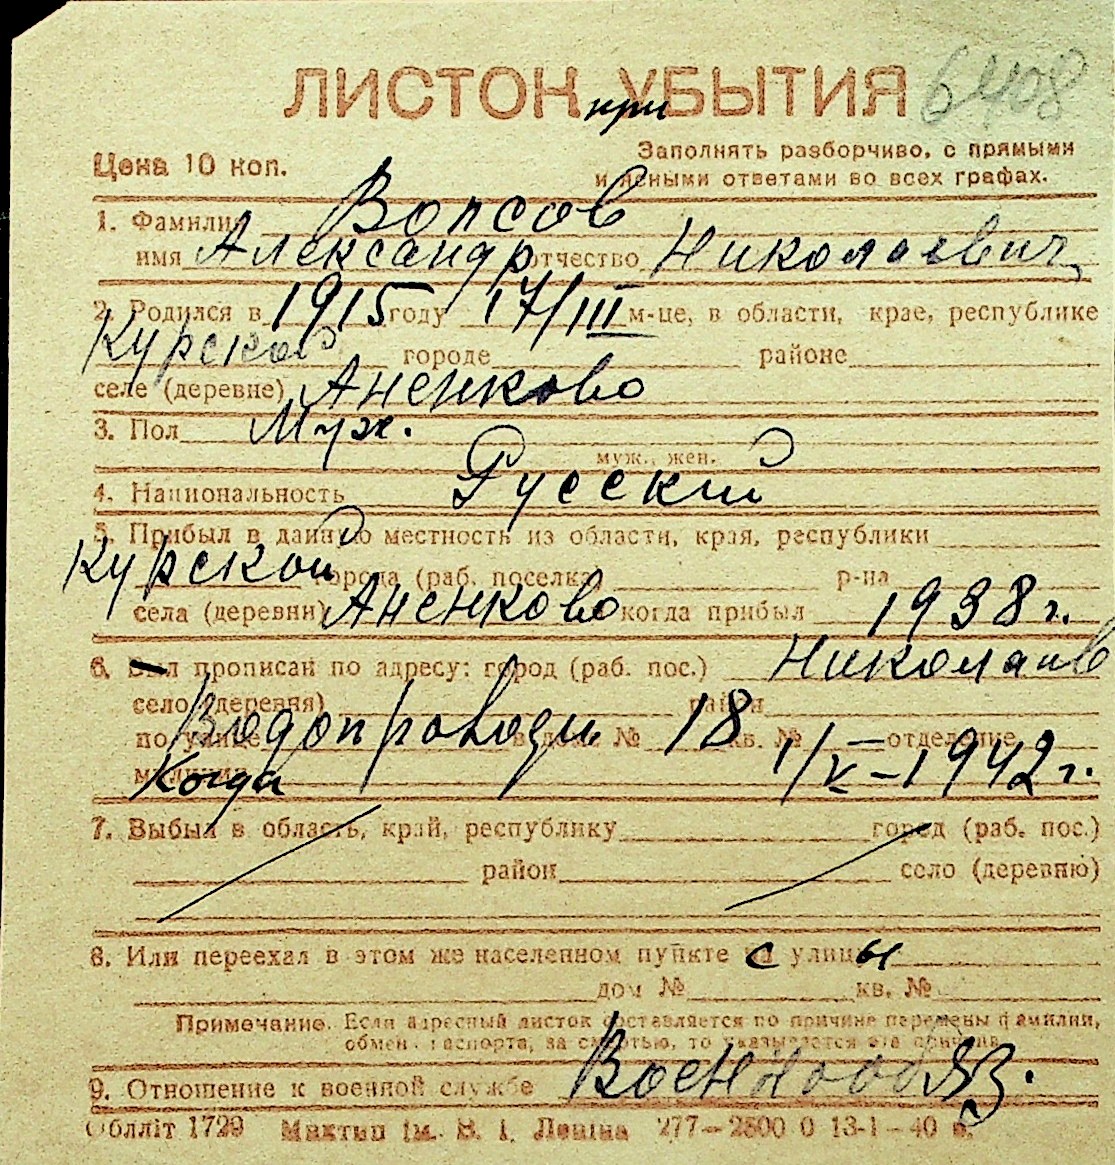 ЛИСТОК УБЫТИЯ 6408
при
Цена 10 коп.
Заполнять разборчиво, с прямыми
и ясными ответами во всех графах.
1. Фамилия Вопсов
имя Александр отчество Николаевич
2. Родился в 1915 году 17/III м-це, в области, крае, республике
Курской городе районе
селе (деревне) Аненково
3. Пол Муж.
муж., жен.
4. Национальность Русский
5. Прибыл в данную местность из области, края, республики
Курской города (раб. поселка) р-на
села (деревни) Аненково когда прибыл 1938 г.
6. Был прописан по адресу: город (раб. пос.) Николаив
село (деревня) район
по улице Водопроводн в доме № 18 кв. № отделение
милиции Когда 1/V-1942 г.
7. Выбыл в область, край, республику город (раб. пос.)
район село (деревню)
8. Или переехал в этом же населенном пункте с улицы
дом № кв. №
Примечание. Если адресный листок составляется по причине перемены фамилии,
обмен паспорта, за смертью, то указывается эта причина
9. Отношение к военной службе Военнообяз.
Обллiт 1729 iм. В. I. Ленiна 277—2800 0 13-1—40 в.